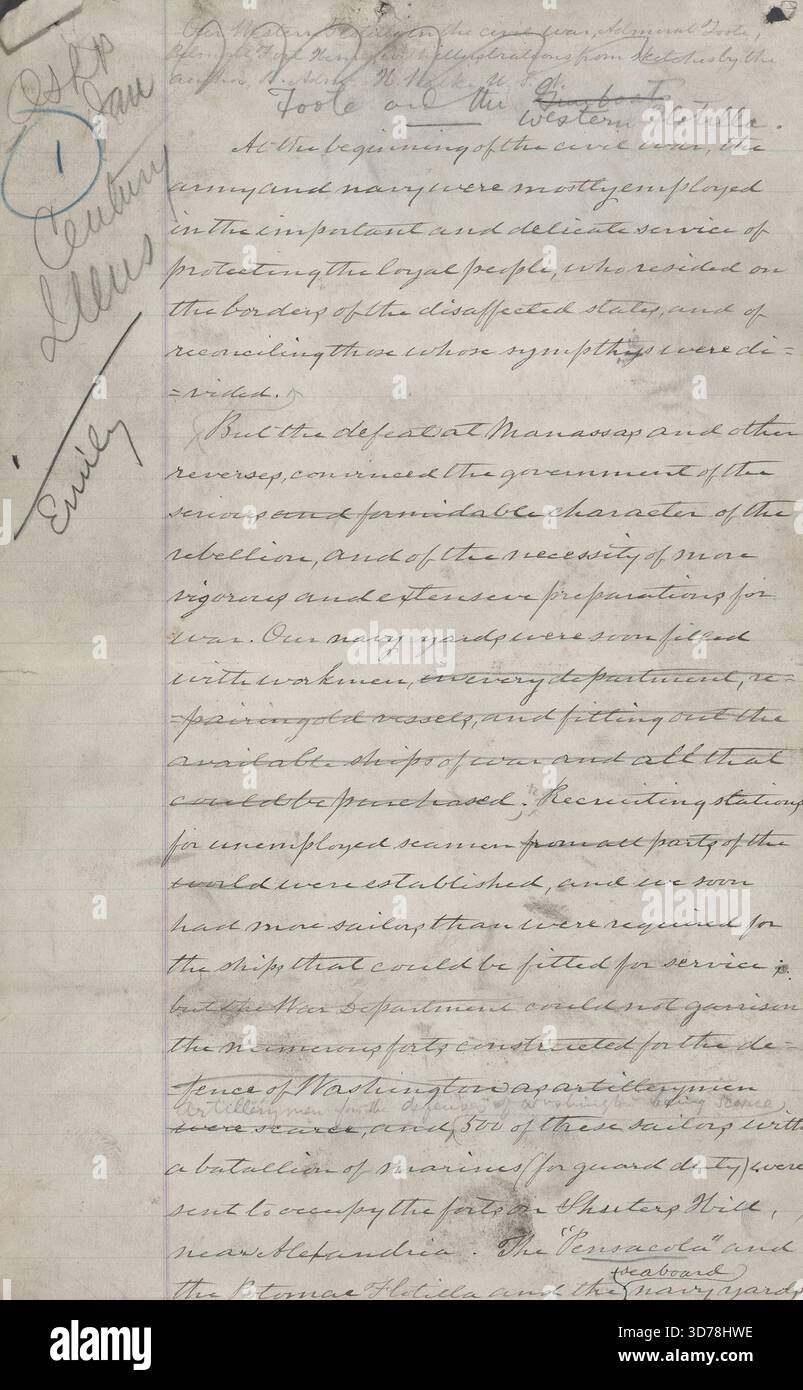 Our Western Flotilla in the civil war, Admiral Foote,
illustrations from sketches by the
author, R. Adml. H. Walke, U.S.N.
Foote and the Gun boats
Western Flotilla.
1
Century
Emily
At the beginning of the civil war, the
army and navy were mostly employed
in the important and delicate service of
protecting the loyal people, who resided on
the borders of the disaffected states, and of
reconciling those whose sympthys were di=
=vided.
But the defeat at Manassas, and other
reverses, convinced the government of the
serious and formidable character of the
rebellion, and of the necessity of more
vigorous and extensive preparations for
war. Our navy yards were soon filled
with workmen, in every department, re=
=pairing old vessels, and fitting out the
available ships of war and all that
could be purchased. Recruiting stations
for unemployed seamen from all parts of the
world were established, and we soon
had more sailors than were required for
the ships that could be fitted for service;
but the War Department could not garrison
the numerous forts constructed for the de=
fence of Washington as artillerymen
Artillerymen for the defense of Washington being scarce,
were scarce, and, 500 of these sailors, with
a batallion of marines (for guard duty) were
sent to occupy the forts on Shuters Hill,
near Alexandria. The "Pensacola" and
seaboard
the Potomac Flotilla and the navy yards
alamy
Image ID: 3D78HWE
www.alamy.com